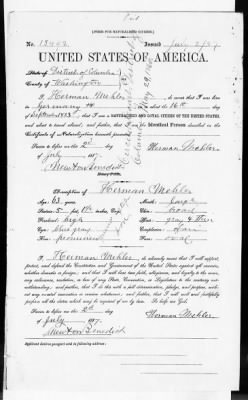 [FORM FOR NATURALIZED CITIZEN.]
No. 13442 Issued July 2/87
UNITED STATES OF AMERICA.
State of District of Columbia
County of Washington
I, Herman Mehler, do swear that I was born
in Germany on the 16th
that I am a NATURALIZED AND LOYAL CITIZEN OF THE UNITED STATES,
and about to travel abroad; and further, that I am the Identical Person described in the
Certificate of Naturalization herewith presented.
Sworn to before me this 2d
day of July 1887.
Herman Mehler
Notary Public.
Description of Herman Mehler
Age: 63 years. Mouth: large
Stature: 5 feet Chin: round
Forehead: high Hair: gray &
Eyes: blue gray Complexion:
Nose: prominent Face: oval
I, Herman Mehler, do solemnly swear that I will support,
protect, and defend the Constitution and Government of the United States against all enemies,
whether domestic or foreign; and that I will bear true faith, allegiance, and loyalty to the same,
any ordinance, resolution, or law of any State, Convention, or Legislature to the contrary not-
withstanding; and further, that I do this with a full determination, pledge, and purpose, with-
out any mental reservation or evasion whatsoever; and further, that I will well and faithfully
perform all the duties which may be required of me by law. So help me God.
Sworn to before me this 2d
day of July 1887.
Herman Mehler